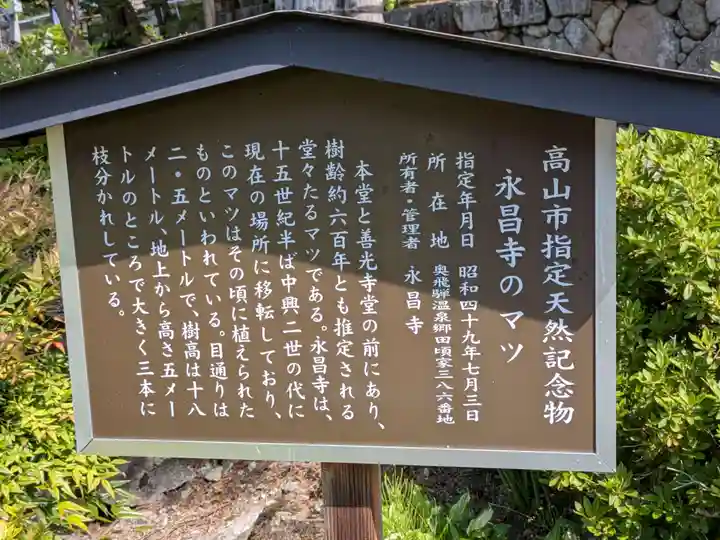 高山市指定天然記念物
永昌寺のマツ
指定年月日 昭和四十九年七月三日
所在地 奥飛騨温泉郷田頃家三八六番地
所有者・管理者 永昌寺
本堂と善光寺堂の前にあり、
樹齢約六百年とも推定される
堂々たるマツである。永昌寺は、
十五世紀半ば中興二世の代に
現在の場所に移転しており、
このマツはその頃に植えられた
ものといわれている。目通りは
二・五メートルで、樹高は十八
メートル、地上から高さ五メー
トルのところで大きく三本に
枝分かれしている。